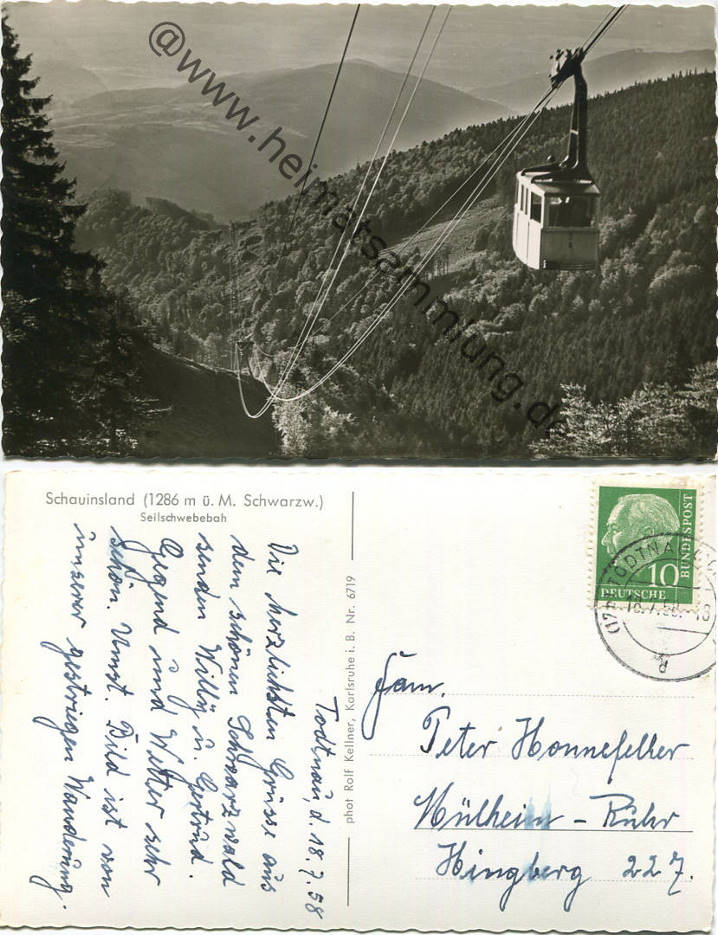 @www.heimatsammlung.de
Schauinsland (1286 m ü. M. Schwarzw.)
Seilschwebebah
Todtnau, d. 18.7.58
Die herzlichsten Grüsse aus
dem schönen Schwarzwald
senden Willy u. Gertrud.
Gegend und Wetter sehr
schön. Umst. Bild ist von
unserer gestriegen Wanderung.
phot Rolf Kellner, Karlsruhe i. B. Nr. 6719
DEUTSCHE
BUNDESPOST
10
TODTNAU
18.7.58.-18
Fam.
Peter Honnefeller
Mülheim - Ruhr
Hingberg 227.